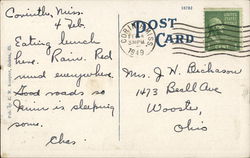 Corinth, Miss.
4 Feb.
Eating lunch
here. Rain. Red
mud everywhere.
Good roads so
is sleeping
some.
Chas.
POST
CARD
CORINTH, MISS.
FEB 4
PM
1949
1 CENT
Mrs. J. H.
1473 Beall Ave
Wooster,
Ohio